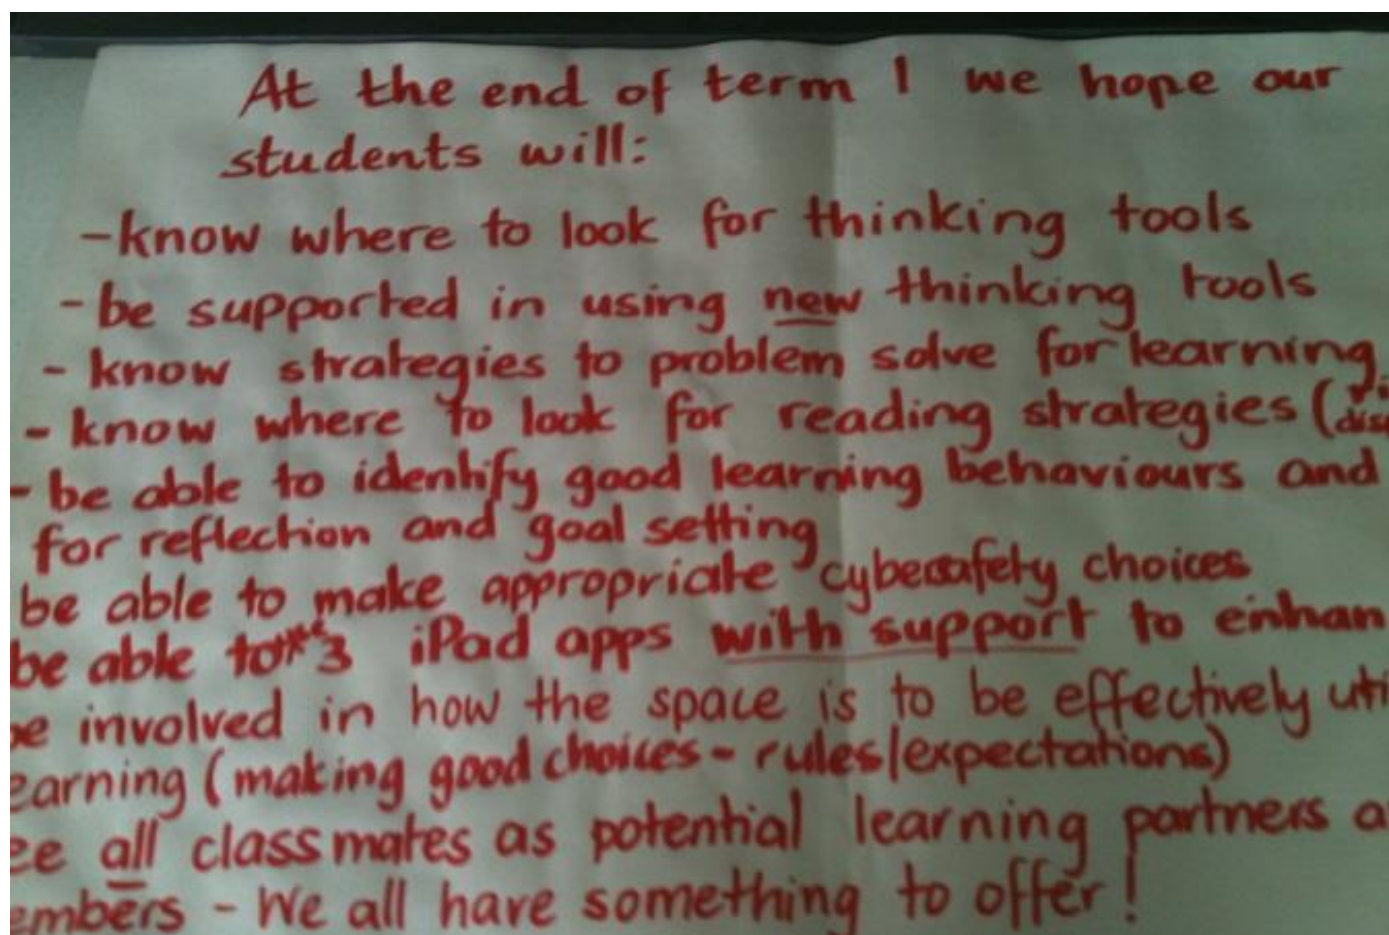 At the end of term 1 we hope our
students will:
-know where to look for thinking tools
-be supported in using new thinking tools
- know strategies to problem solve for learning
- know where to look for reading strategies (
- be able to identify good learning behaviours and
for reflection and goal setting
be able to make appropriate cybersafety choices
be able to *** 3 iPad apps with support to enhan
be involved in how the space is to be effectively uti
earning (making good choices - rules/expectations)
ee all classmates as potential learning partners a
embers - We all have something to offer!